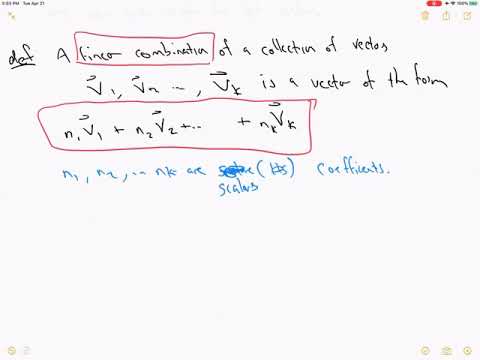 5:03 PM Tue Apr 21
100%
def A linear combination of a collection of vectors
V⃗1, V⃗2 ..., V⃗k is a vector of the form
n1V⃗1 + n2V⃗2 + ... + nkV⃗k
n1, n2, ... nk are (#s) coefficients.
scalars